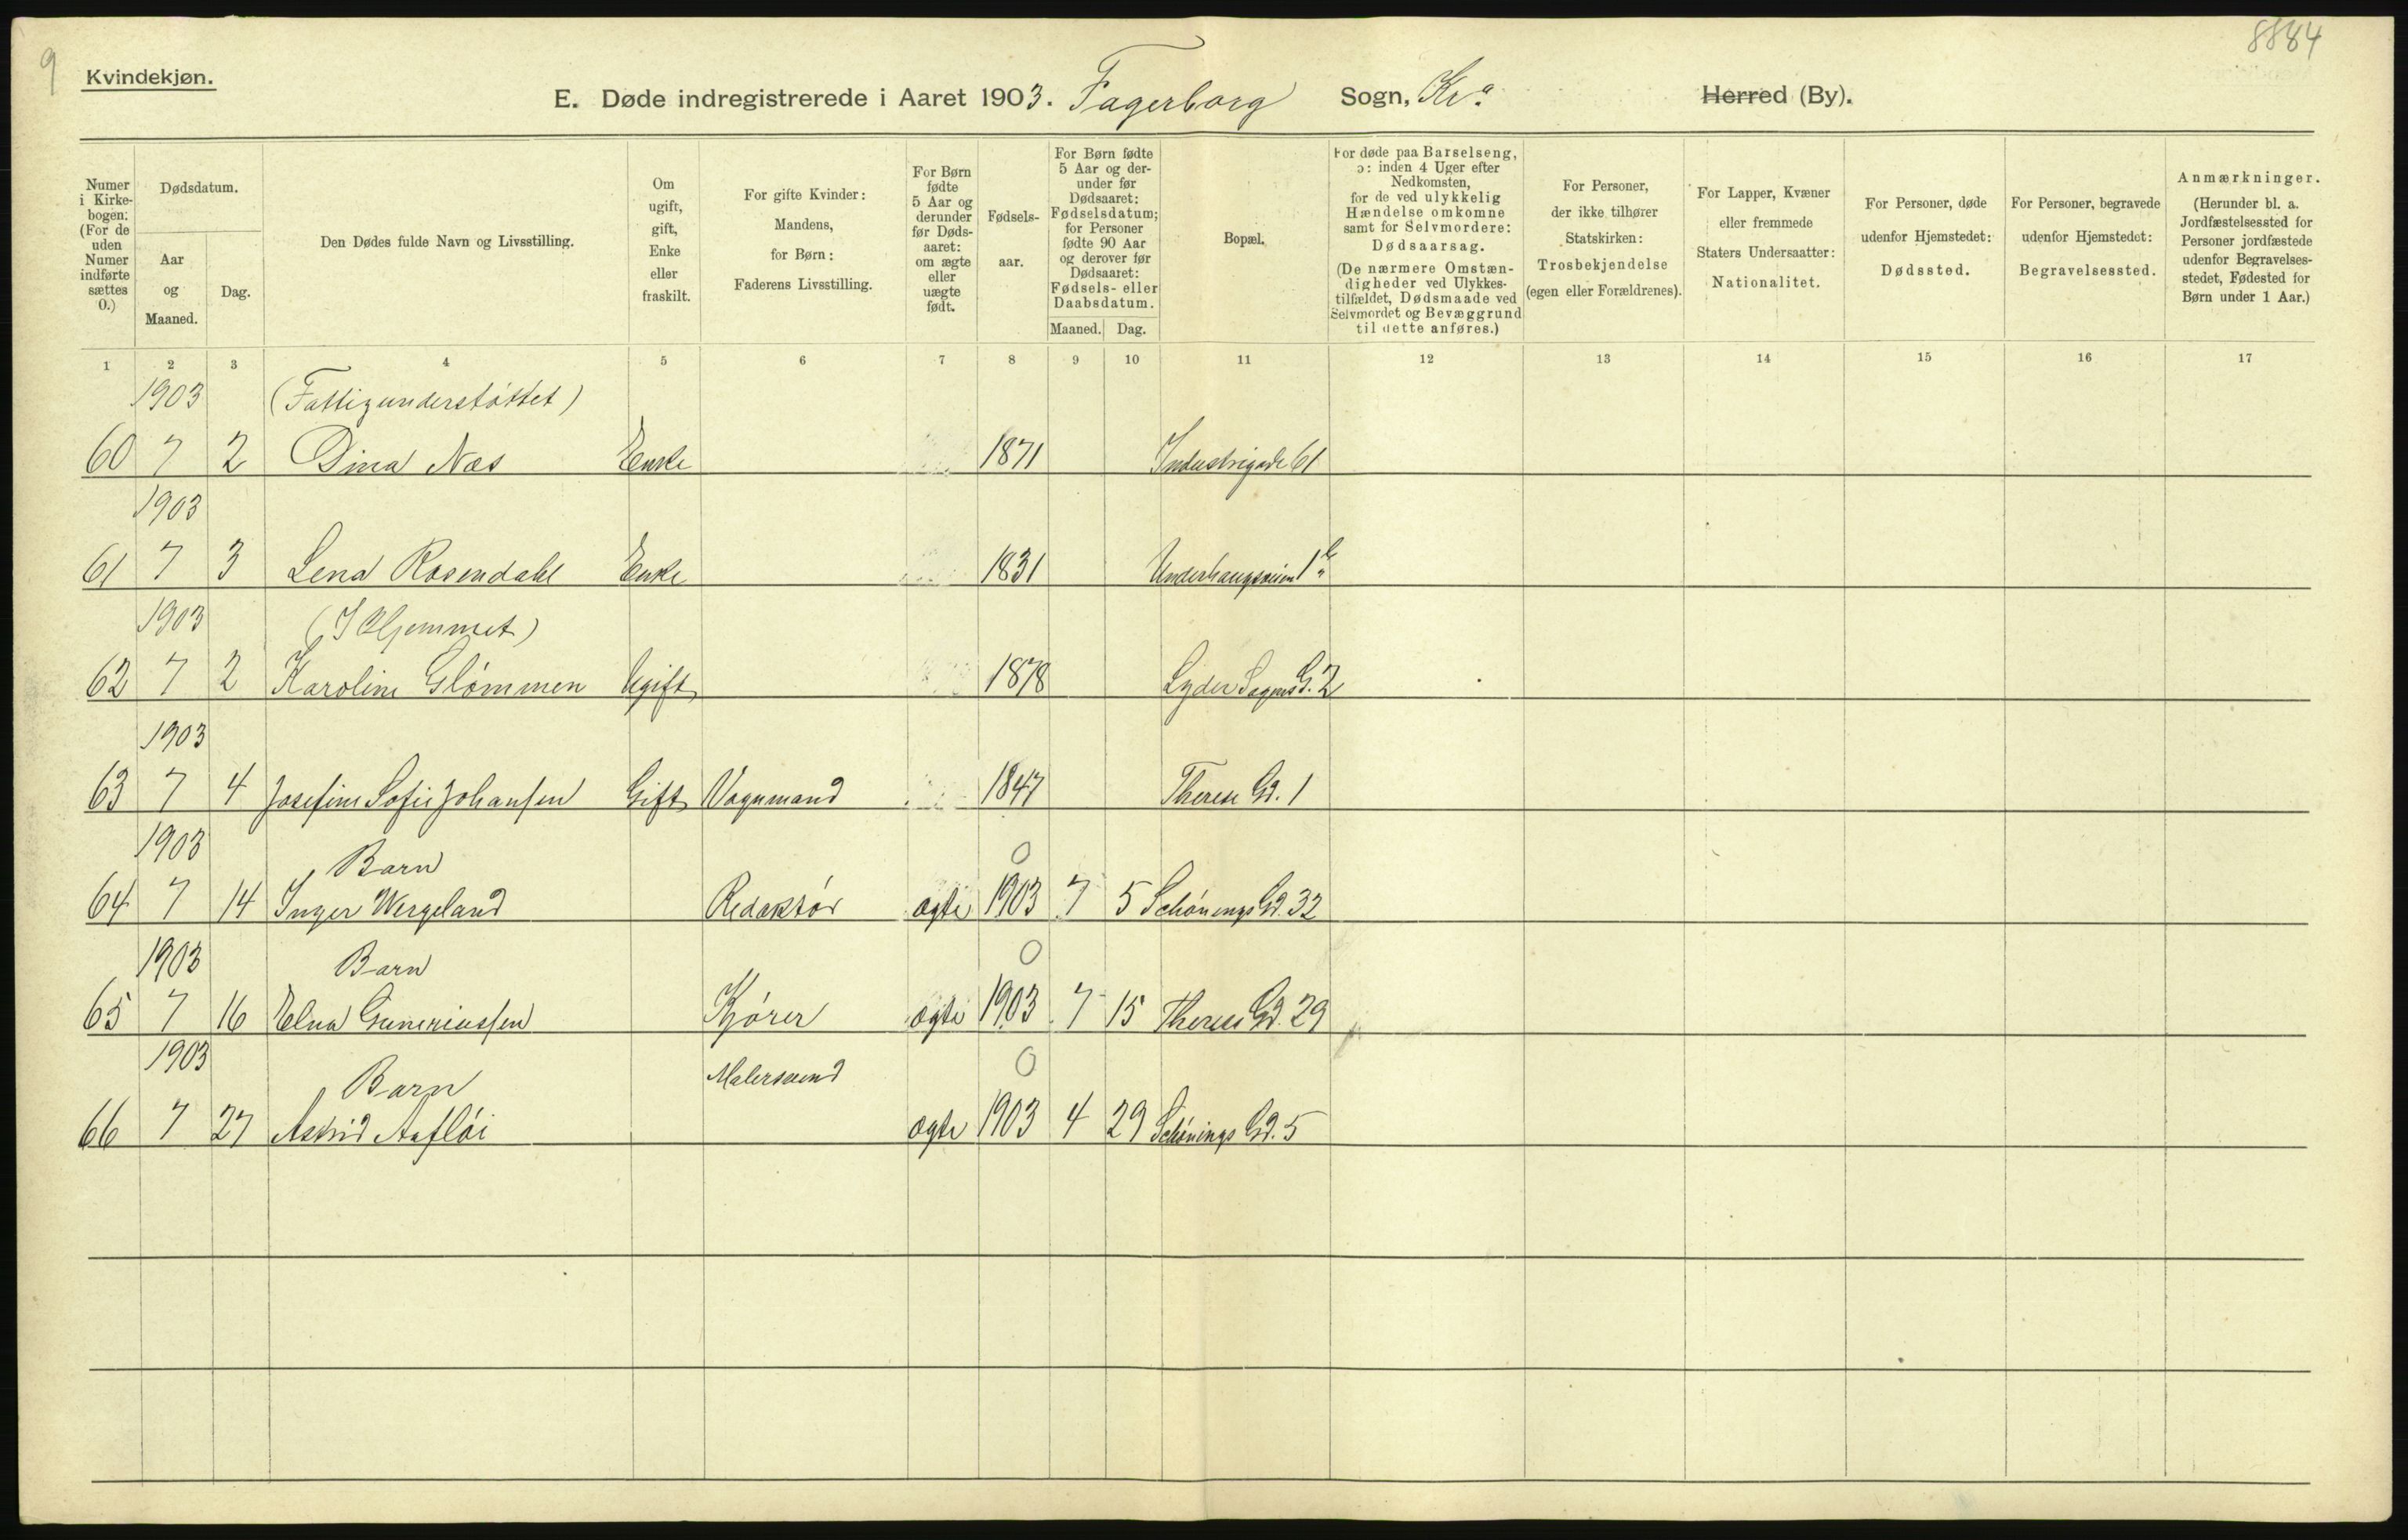 9
8884
Kvindekjøn.
E. Døde indregistrerede i Aaret 1903. Fagerborg Sogn, Kra Herred (By).
Numer i Kirkebogen: (For de uden Numer indførte sættes 0.)
Dødsdatum.
Aar og Maaned.
Dag.
Den Dødes fulde Navn og Livsstilling.
Om ugift, gift, Enke eller fraskilt.
For gifte Kvinder: Mandens, for Børn: Faderens Livsstilling.
For Børn fødte 5 Aar og derunder før Dødsaaret: om ægte eller uægte født.
Fødselsaar.
For Børn fødte 5 Aar og derunder før Dødsaaret: Fødselsdatum; for Personer fødte 90 Aar og derover før Dødsaaret: Fødsels- eller Daabsdatum.
Maaned. Dag.
Bopæl.
For døde paa Barselseng, ɔ: inden 4 Uger efter Nedkomsten, for de ved ulykkelig Hændelse omkomne samt for Selvmordere: Dødsaarsag. (De nærmere Omstændigheder ved Ulykkestilfældet, Dødsmaade ved Selvmordet og Bevæggrund til dette anføres.)
For Personer, der ikke tilhører Statskirken: Trosbekjendelse (egen eller Forældrenes).
For Lapper, Kvæner eller fremmede Staters Undersaatter: Nationalitet.
For Personer, døde udenfor Hjemstedet: Dødssted.
For Personer, begravede udenfor Hjemstedet: Begravelsessted.
Anmærkninger. (Herunder bl. a. Jordfæstelsessted for Personer jordfæstede udenfor Begravelsesstedet, Fødested for Børn under 1 Aar.)
1 2 3 4 5 6 7 8 9 10 11 12 13 14 15 16 17
1903 (Fattigunderstøttet)
60 7 2 Dina Næs Enke 1871 Industrigade 61
1903
61 7 3 Lena Rosendahl Enke 1831 Underhaugsveien 1
1903 (I Hjemmet)
62 7 2 Karoline Glømmen Ugift 1878 Lyder Sagens G. 2
1903
63 7 4 Josefine Sofie Johansen Gift Vognmand 1847 Therese Gd. 1
1903 Barn 0
64 7 14 Inger Wergeland Redaktør ægte 1903 7 5 Schønings Gd. 32
1903 Barn 0
65 7 16 Elna Guneriussen Kjører ægte 1903 7 15 Therese Gd. 29
1903 Barn Malersvend 0
66 7 27 Astrid Aafløi ægte 1903 4 29 Schønings Gd. 5